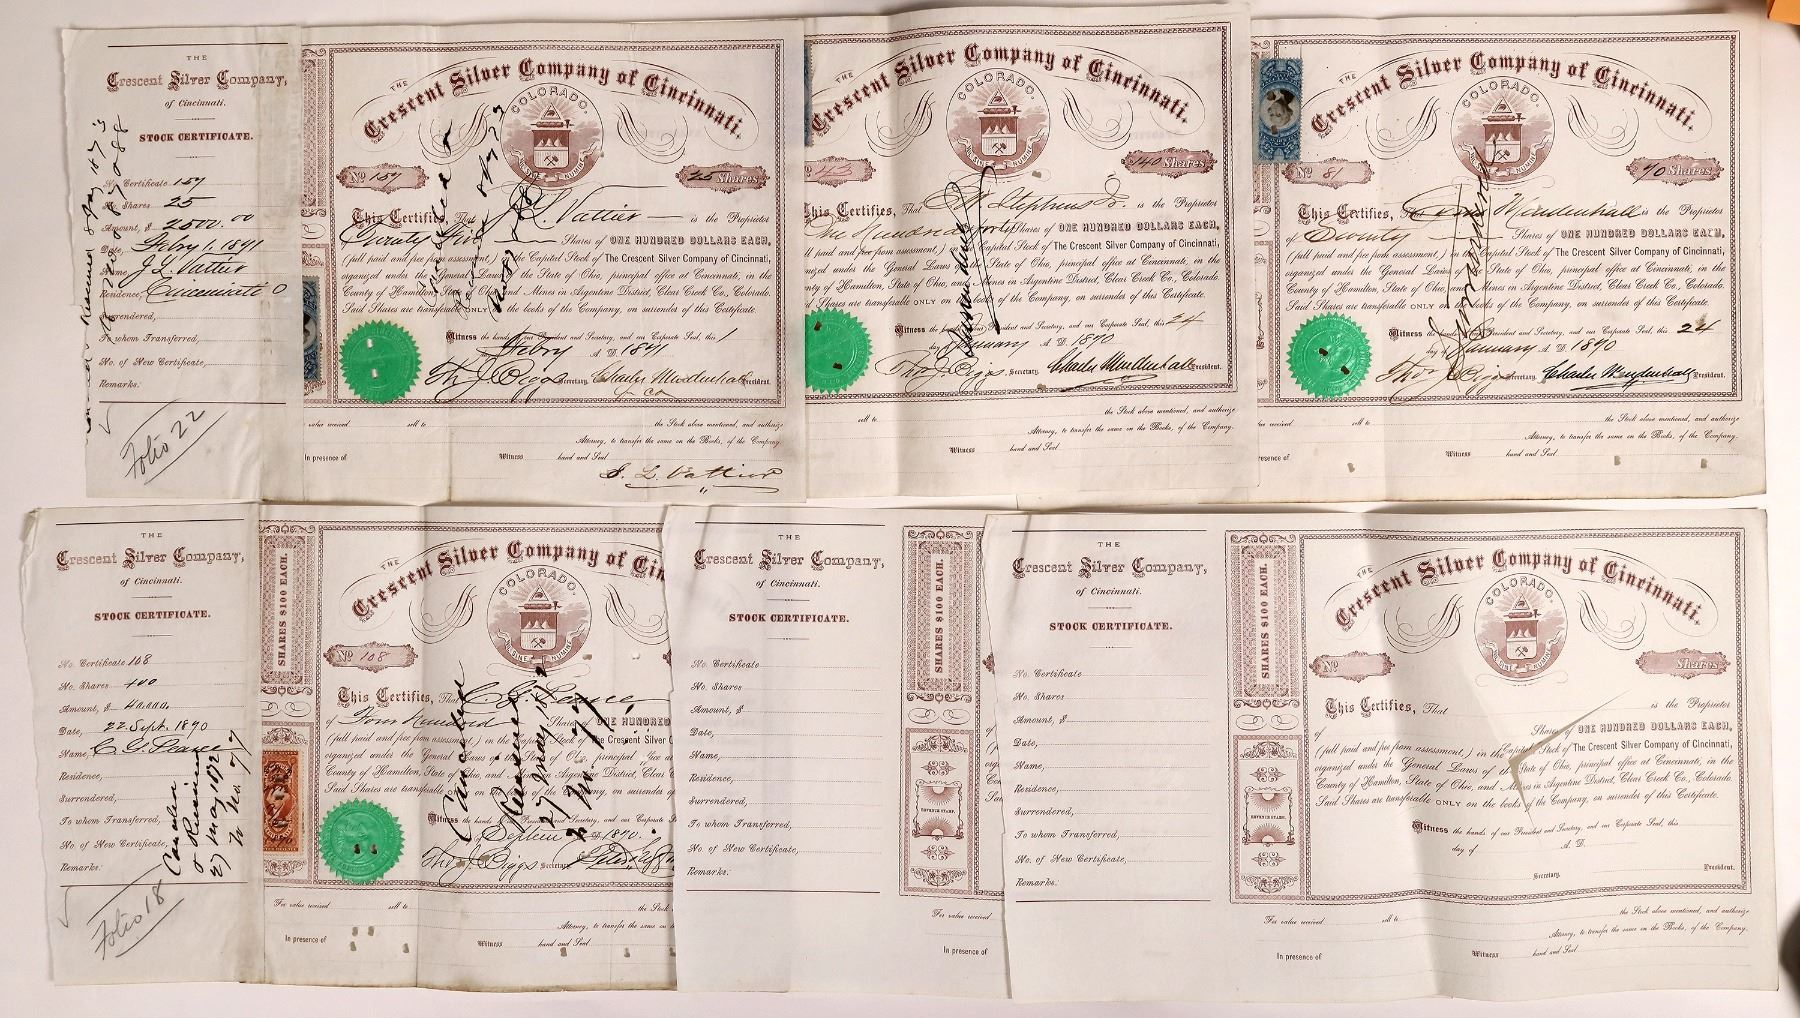 THE
Crescent Silver Company,
of Cincinnati.
STOCK CERTIFICATE.
No. Certificate 157
No. Shares 25
Amount, $ 2500.00
Date, Febry 1, 1871
Name J L Vattier
Residence, Cincinnati O
Surrendered,
To whom Transferred,
No. of New Certificate,
Remarks:
Folio 22
THE
Crescent Silver Company of Cincinnati.
COLORADO.
No 157
25 Shares
This Certifies, That J L Vattier is the Proprietor
of Twenty Five Shares of ONE HUNDRED DOLLARS EACH,
(full paid and free from assessment,) in the Capital Stock of The Crescent Silver Company of Cincinnati,
organized under the General Laws of the State of Ohio, principal office at Cincinnati, in the
County of Hamilton, State of Ohio and Mines in Argentine District, Clear Creek Co., Colorado.
Said Shares are transferable ONLY on the books of the Company, on surrender of this Certificate.
Witness the hands of our President and Secretary, and our Corporate Seal, this 1
Febry A. D. 1871
Secretary. Charles Mendenhall President.
value received sell to the Stock above mentioned, and authorize
Attorney, to transfer the same on the Books, of the Company.
In presence of Witness hand and Seal
THE
Crescent Silver Company of Cincinnati.
COLORADO.
140 Shares
This Certifies, That Stephens Jr. is the Proprietor
One Hundred & forty Shares of ONE HUNDRED DOLLARS EACH,
paid and free from assessment,) in the Capital Stock of The Crescent Silver Company of Cincinnati,
under the General Laws of the State of Ohio, principal office at Cincinnati, in the
of Hamilton, State of Ohio, and Mines in Argentine District, Clear Creek Co., Colorado.
Shares are transferable ONLY on the books of the Company, on surrender of this Certificate.
Witness the hands of our President and Secretary, and our Corporate Seal, this 24
day of January A. D. 1870
Thos J Biggs Secretary. Charles Mendenhall President.
sell to the Stock above mentioned, and authorize
Attorney, to transfer the same on the Books, of the Company.
Witness hand and Seal
THE
Crescent Silver Company of Cincinnati.
COLORADO.
No 81
70 Shares
This Certifies, That Mendenhall is the Proprietor
of Seventy Shares of ONE HUNDRED DOLLARS EACH,
(full paid and free from assessment,) in the Capital Stock of The Crescent Silver Company of Cincinnati,
organized under the General Laws of the State of Ohio, principal office at Cincinnati, in the
County of Hamilton, State of Ohio, and Mines in Argentine District, Clear Creek Co., Colorado.
Said Shares are transferable ONLY on the books of the Company, on surrender of this Certificate.
Witness the hands of our President and Secretary, and our Corporate Seal, this 24
day of January A. D. 1870
Thos J Biggs Secretary. Charles Mendenhall President.
received sell to the Stock above mentioned, and authorize
Attorney, to transfer the same on the Books, of the Company.
Witness hand and Seal
THE
Crescent Silver Company,
of Cincinnati.
STOCK CERTIFICATE.
No. Certificate 108
No. Shares 400
Amount, $ 40.000.
Date, 22 Sept. 1870
Name, C. G. Pearce
Residence,
Surrendered,
To whom Transferred,
No. of New Certificate,
Remarks:
Folio 18
SHARES $100 EACH.
THE
Crescent Silver Company of Cin
COLORADO.
No 108
This Certifies, That C. G. Pearce
of Four Hundred Shares of ONE HUNDRED
(full paid and free from assessment,) in the Capital Stock of The Crescent Silver C
organized under the General Laws of the State of Ohio, principal office a
County of Hamilton, State of Ohio, and Mines in Argentine District, Clear C
Said Shares are transferable ONLY on the books of the Company, on surrender of
Witness the hands
A. D. 1870.
Thos J Biggs Secretary
Cancelled
For value received sell to the Stock
Attorney, to transfer the same on t
In presence of Witness hand and Seal
THE
Crescent Silver Company,
of Cincinnati.
STOCK CERTIFICATE.
No. Certificate
No. Shares
Amount, $
Date,
Name,
Residence,
Surrendered,
To whom Transferred,
No. of New Certificate,
Remarks:
SHARES $100 EACH.
REVENUE STAMP.
For value received
In presence of
THE
Crescent Silver Company,
of Cincinnati.
STOCK CERTIFICATE.
No. Certificate
No. Shares
Amount, $
Date,
Name,
Residence,
Surrendered,
To whom Transferred,
No. of New Certificate,
Remarks:
SHARES $100 EACH.
REVENUE STAMP.
THE
Crescent Silver Company of Cincinnati.
COLORADO.
No
Shares
This Certifies, That is the Proprietor
of Shares of ONE HUNDRED DOLLARS EACH,
(full paid and free from assessment,) in the Capital Stock of The Crescent Silver Company of Cincinnati,
organized under the General Laws of the State of Ohio, principal office at Cincinnati, in the
County of Hamilton, State of Ohio, and Mines in Argentine District, Clear Creek Co., Colorado.
Said Shares are transferable ONLY on the books of the Company, on surrender of this Certificate.
Witness the hands of our President and Secretary, and our Corporate Seal, this
day of A. D.
Secretary. President.
For value received sell to the Stock above mentioned, and authorize
Attorney, to transfer the same on the Books, of the Company.
In presence of Witness hand and Seal